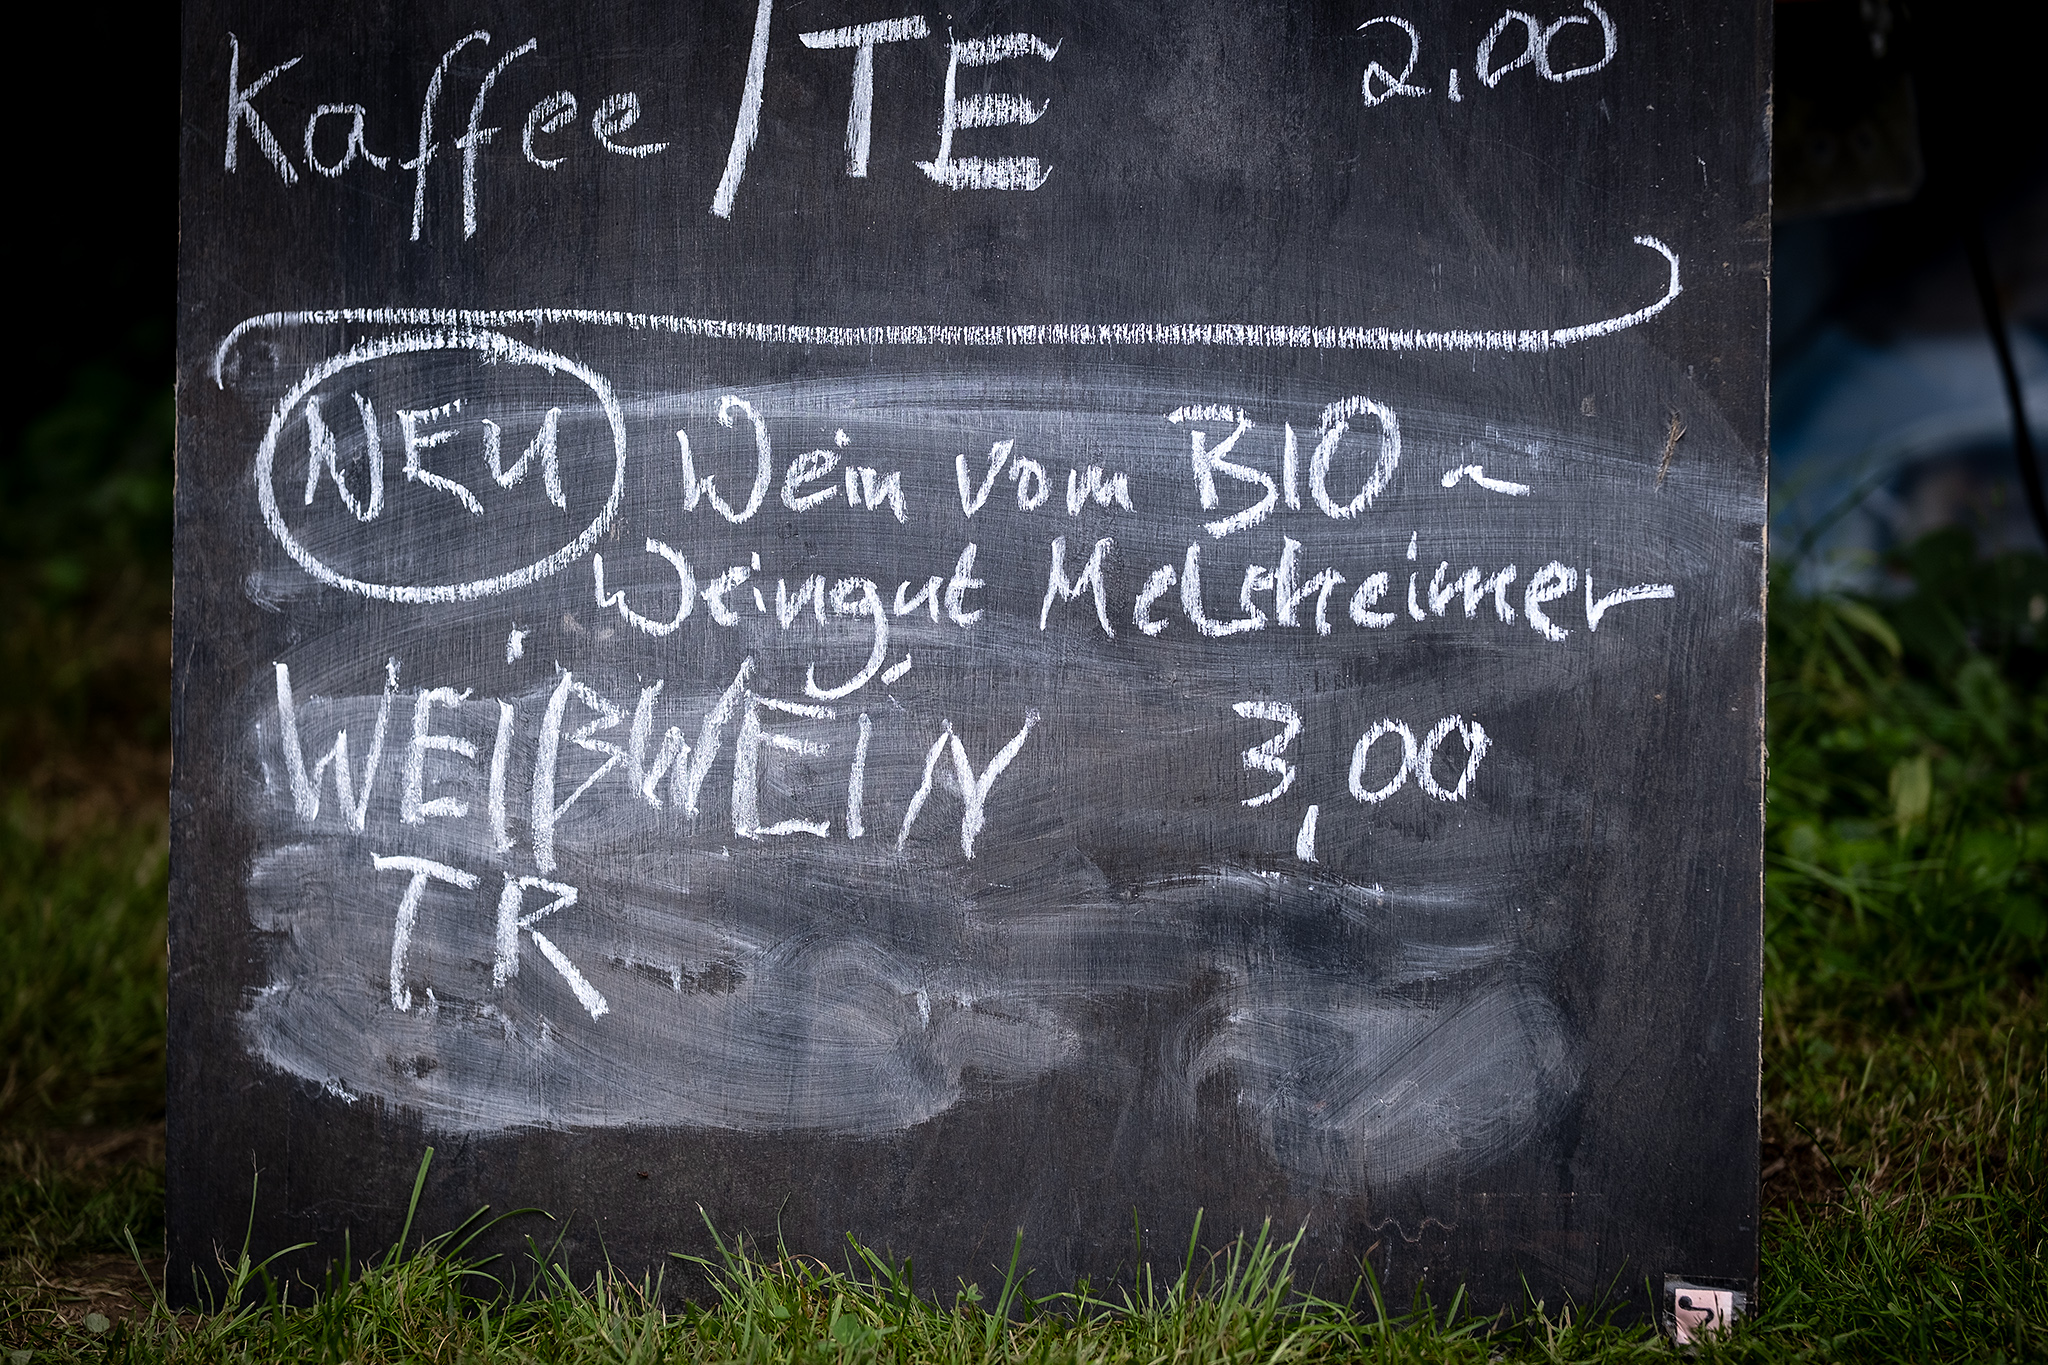 Kaffee / TE 2,00
NEU Wein vom BIO ~
Weingut Melsheimer
WEIßWEIN 3,00
TR